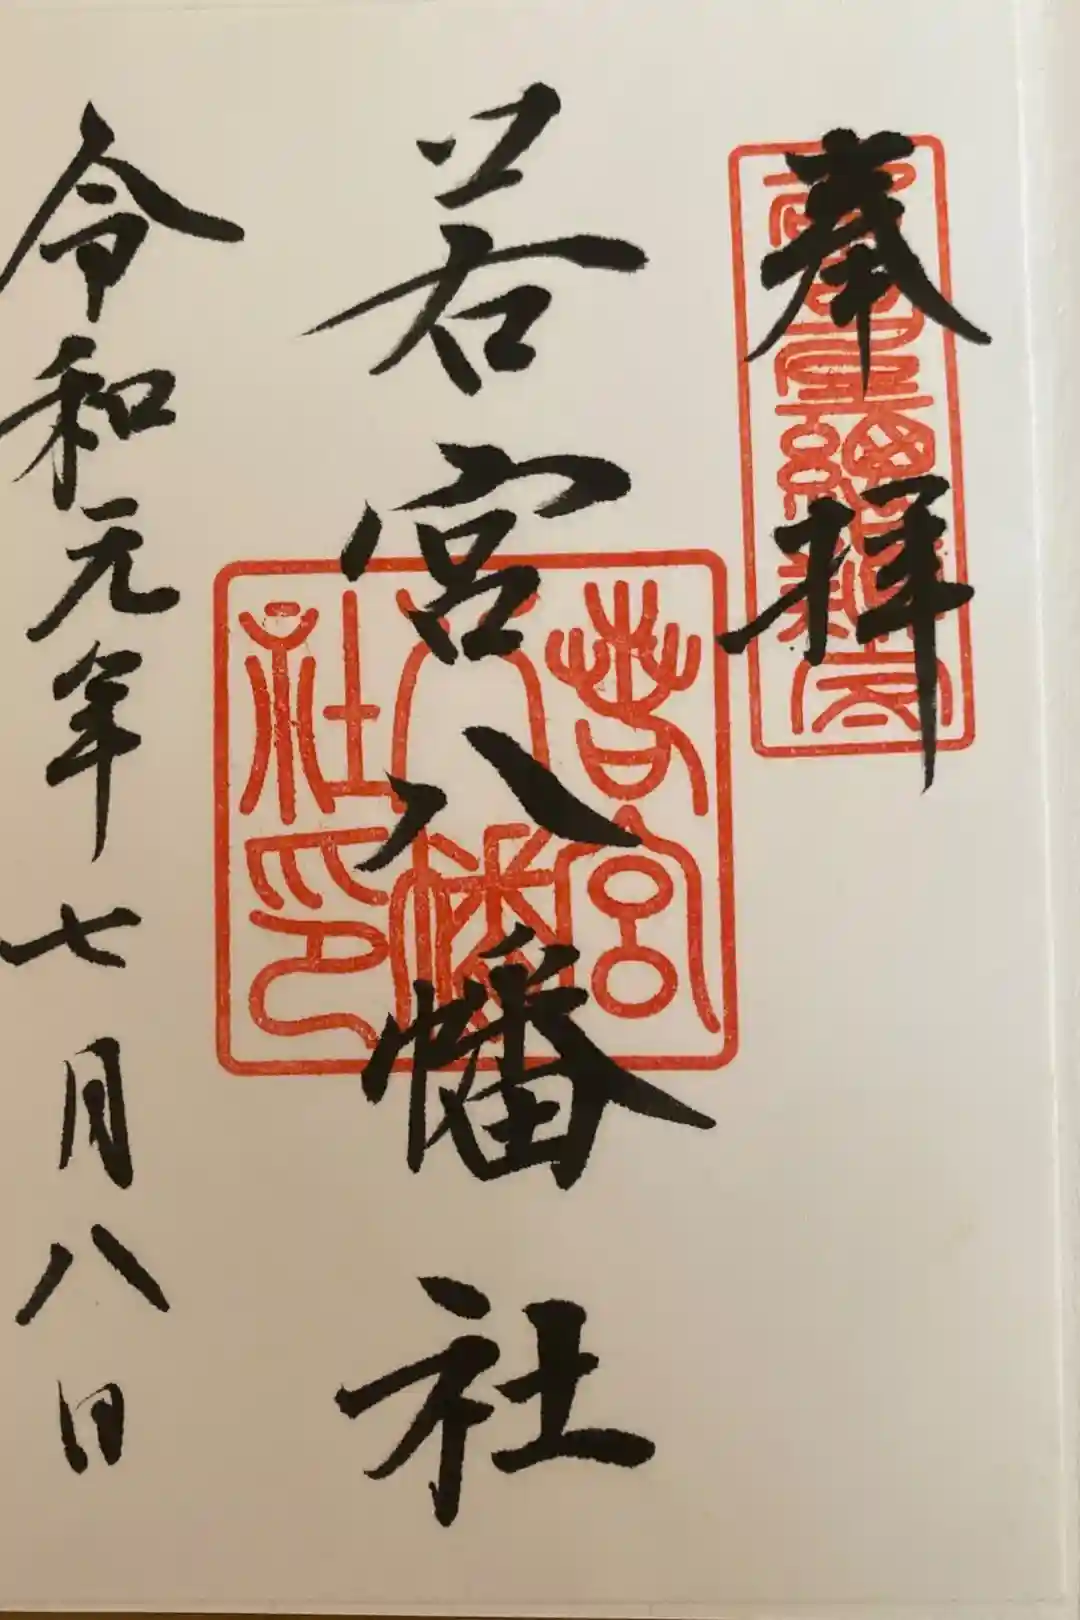 奉拝
若宮八幡社
令和元年七月八日
若宮
八幡
社印